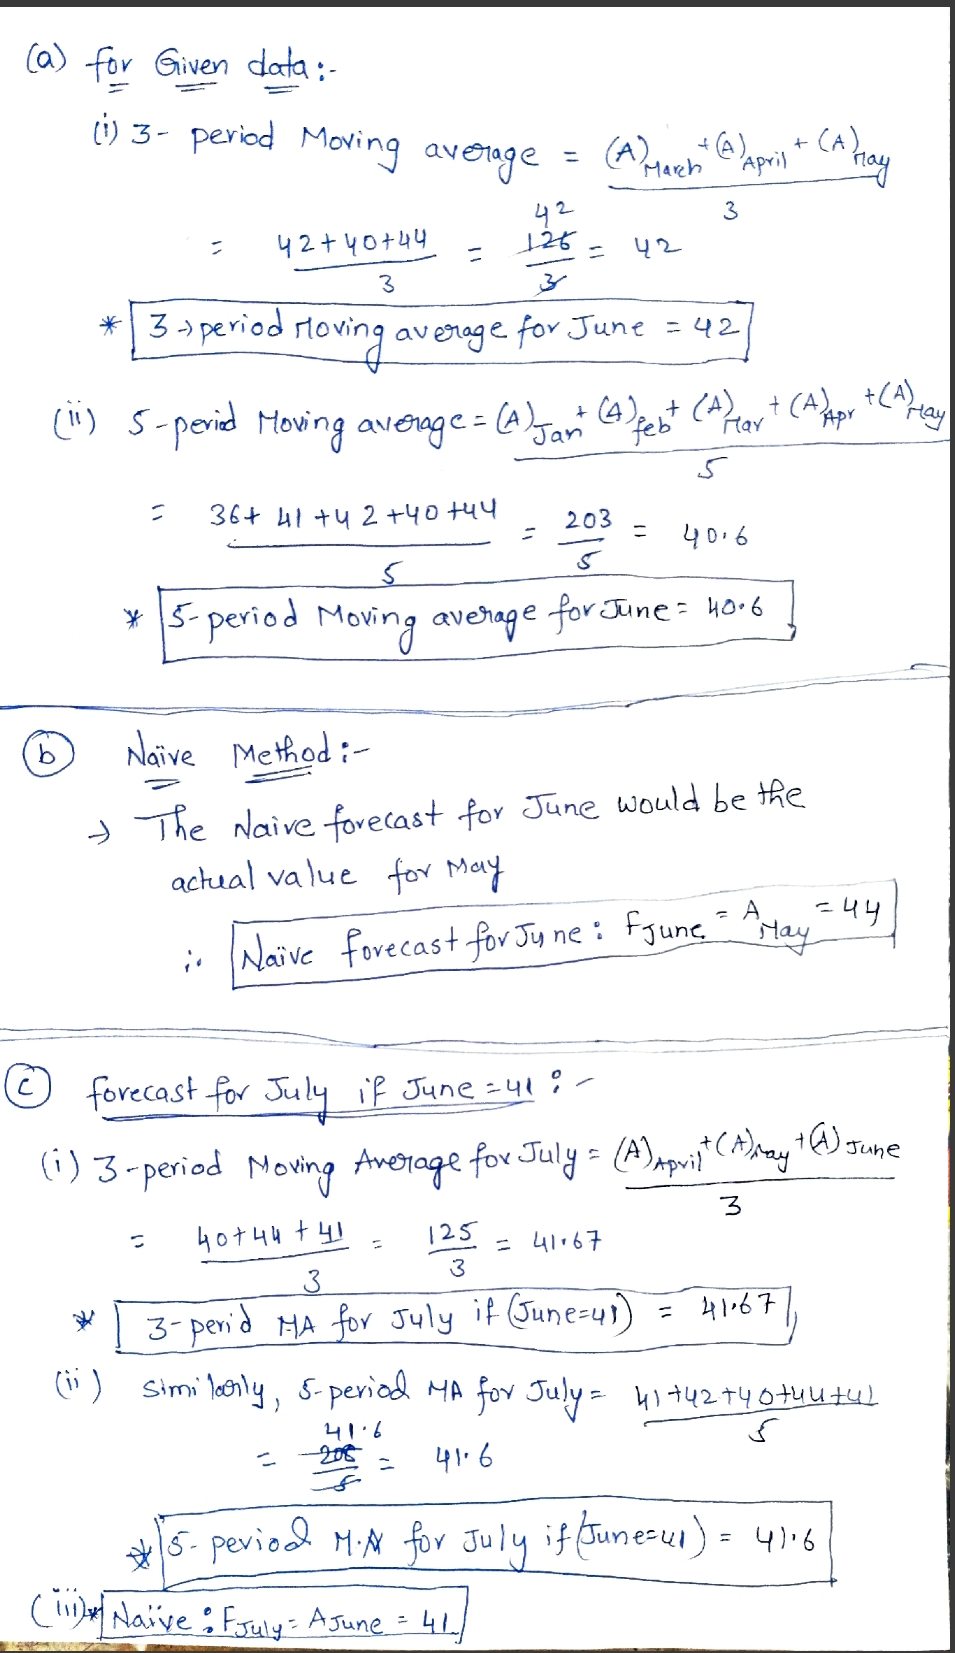 (a) for Given data :-
(i) 3- period Moving average = (A)March + (A)April + (A)May
3
= 42+40+44 / 3 = 126 / 3 = 42
42
* 3 → period Moving average for June = 42
(ii) 5-period Moving average = (A)Jan + (A)feb + (A)Mar + (A)Apr + (A)May
5
= 36+ 41 +42 +40 +44 / 5 = 203 / 5 = 40.6
* 5-period Moving average for June = 40.6
(b) Naïve Method :-
→ The Naive forecast for June would be the
actual value for May
∴ Naïve forecast for June : FJune = AMay = 44
(c) forecast for July if June = 41 :-
(i) 3-period Moving Average for July = (A)April + (A)May + (A)June
3
= 40+44+41 / 3 = 125 / 3 = 41.67
* 3-period MA for July if (June=41) = 41.67
(ii) similarly, 5-period MA for July = 41+42+40+44+41
5
41.6
= 208 / 5 = 41.6
* 5-period M.A for July if (June=41) = 41.6
(iii) * Naïve : FJuly = AJune = 41